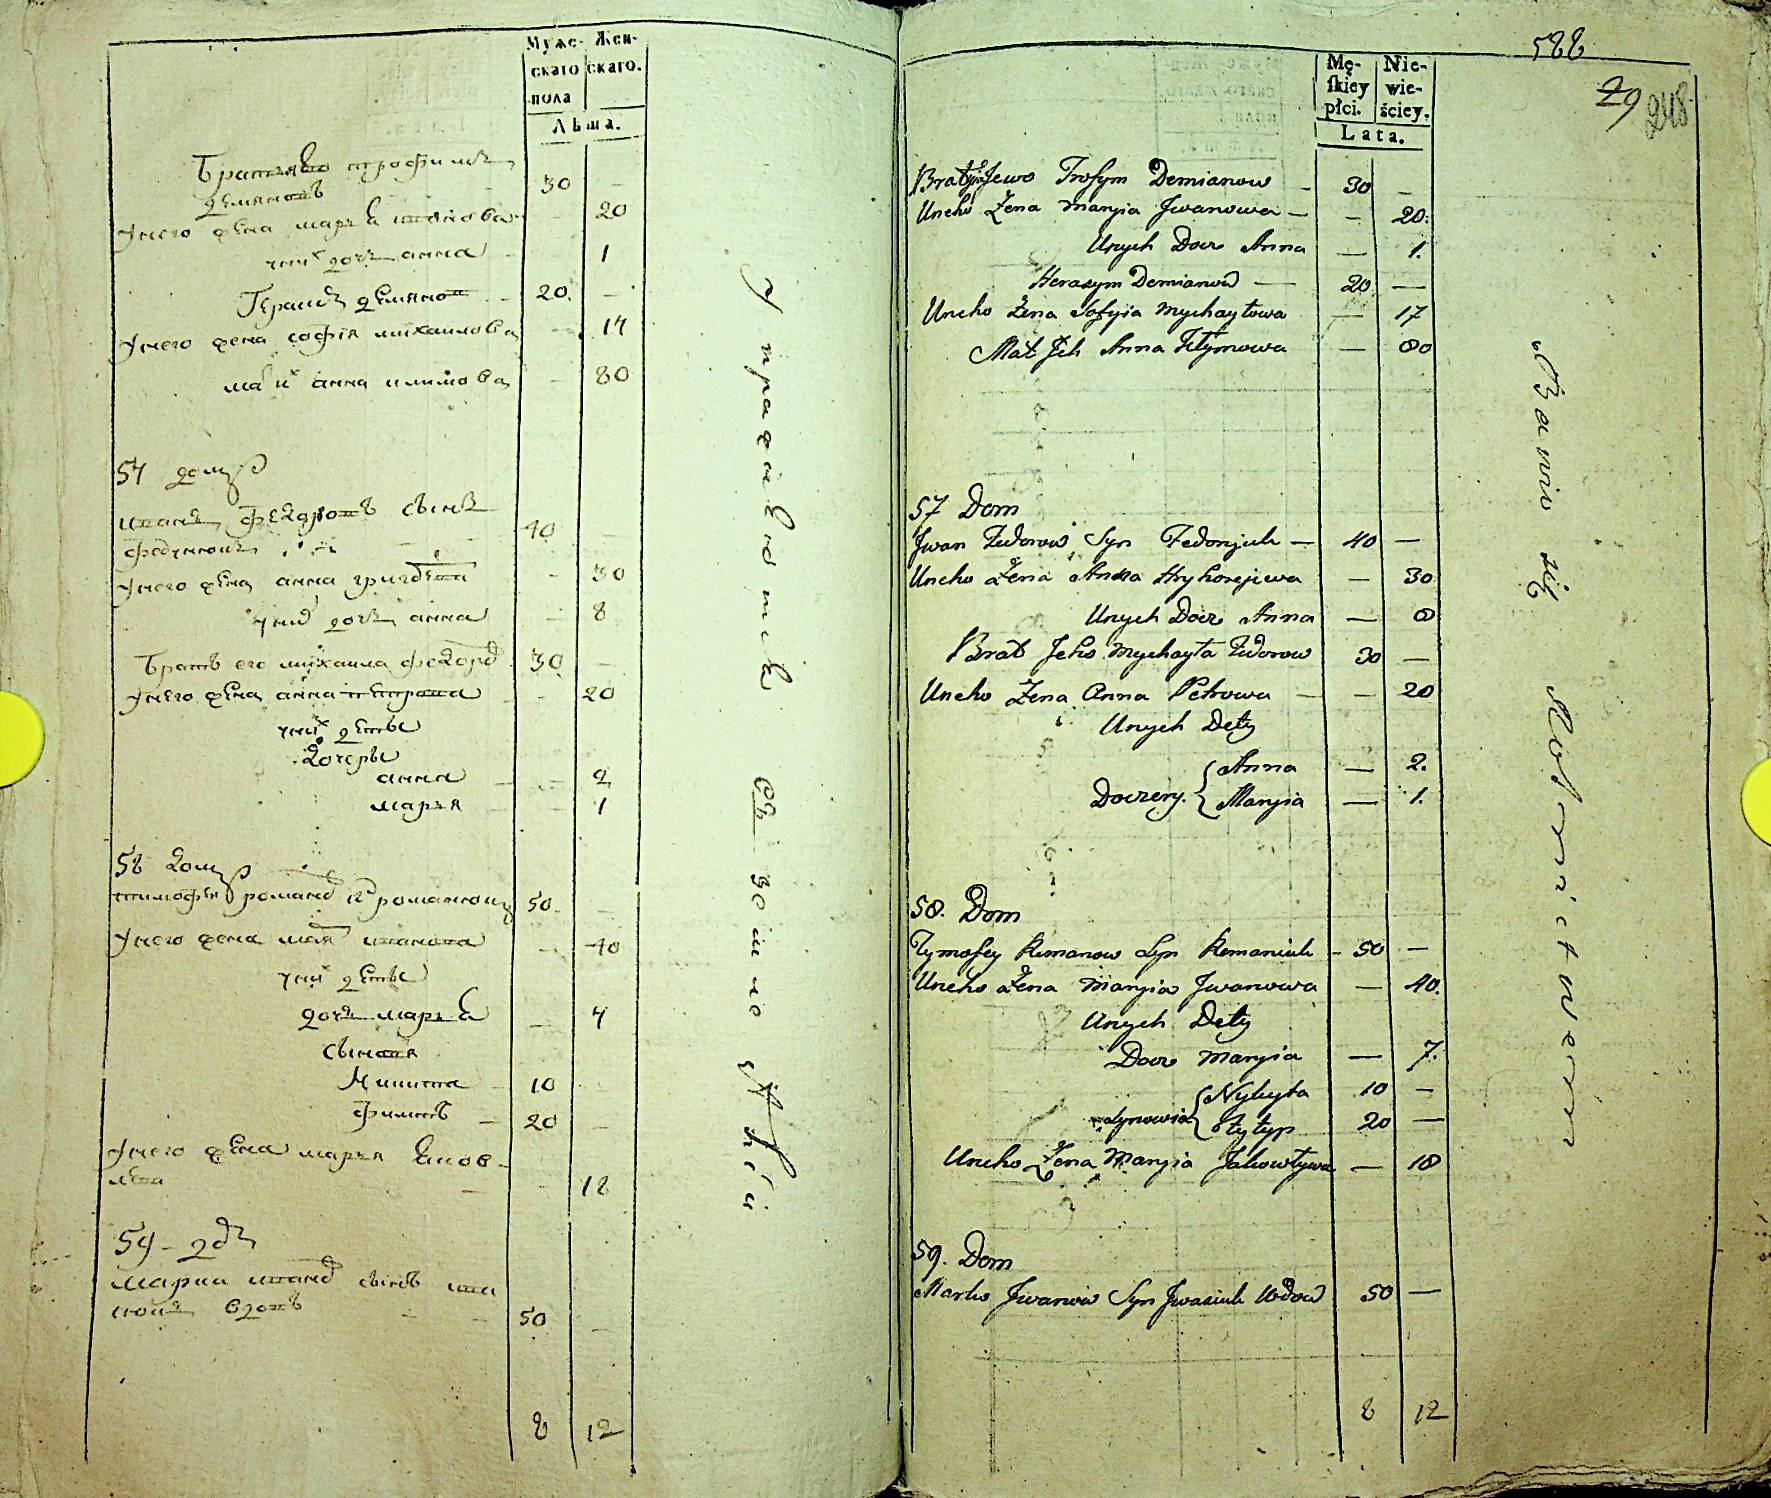 Муже- Жен-
скаго скаго.
пола
Лѣта.
Братъ его трофимъ
демяновъ 30 –
У него жена марья иванова – 20
у них дочь анна – 1
Герасим демянов 20. –
У него жена софія михаилова – 17
мат их анна климова – 80
57 домъ
иванъ федоровъ сынъ
федчнюкъ 40 –
У него жена анна григорева – 30
у них дочь анна – 8
Братъ его михаила федоров 30 –
У него жена анна петрова – 20
у них дѣти
дочери
анна – 2
марья – 1
58 домъ
тимофеи романов с романюкъ 50 –
У него жена мая иванова – 40
у них дѣти
дочь марья – 7
сыновя
Никита 10 –
Филипъ – 20 –
У него жена марья яков-
лева – 18
59 – домъ
марки иванов сынъ ива
нюкъ вдовъ 50 –
8 12
упражняются въ зѣмледѣлѣй
588
29 248
Mę- Nie-
skiey wie-
płci. ściey.
Lata.
Brat Jeho Trofym Demianow – 30 –
Uneho Żena Maryia Jwanowa – – 20.
Unych Docz Anna – 1.
Herasym Demianow – 20 –
Uneho Żena Sofyia Mychayłowa – 17
Mat Jch Anna Kłymowa – 80
57 Dom
Jwan Fedorow Syn Fedoniuk – 40 –
Uneho Żena Anna Hryhoreiewa – 30
Unych Docz Anna – 8
Brat Jeho Mychayła Fedorow 30 –
Uneho Żena Anna Petrowa – – 20
Unych Dety
Anna – 2.
Doczery. Maryia – 1.
58. Dom
Tymofey Romanow Syn Romaniuk – 50 –
Uneho Żena Maryia Jwanowa – 40.
Unych Dety
Docz Maryia – 7.
Nykyta 10 –
Synowia Fyłyp 20 –
Uneho Żena Maryia Jakowlewa – 18
59. Dom
Marko Jwanow Syn Jwaniuk Wdow 50 –
8 12
Bawio się Rolnictwem